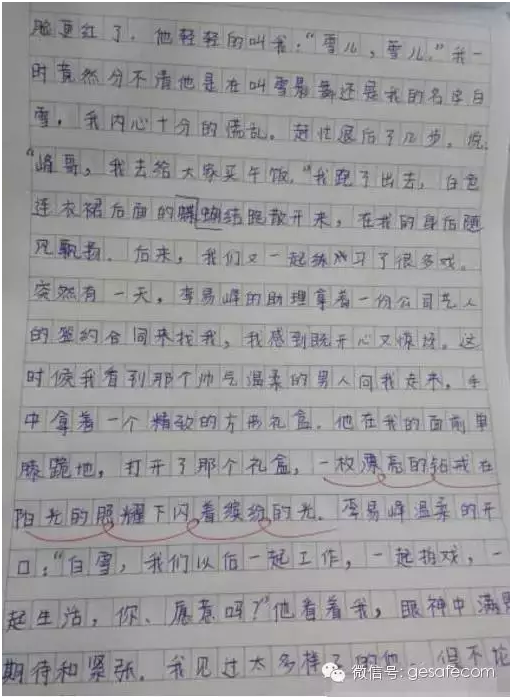 脸更红了。他轻轻的叫我："雪儿，雪儿。"我一
时竟然分不清他是在叫雪舞还是我的名字白
雪，我内心十分的慌乱。赶忙退后了几步。说:
"峰哥，我去给大家买午饭。"我跑了出去，白色
连衣裙后面的蝴蝶结跑散开来，在我的身后随
风飘扬。后来，我们又一起练习了很多戏。
突然有一天，李易峰的助理拿着一份公司艺人
的签约合同来找我，我感到既开心又惊讶。这
时候我看到那个帅气温柔的男人向我走来，手
中拿着一个精致的方形礼盒。他在我的面前单
膝跪地，打开了那个礼盒，一枚漂亮的钻戒在
阳光的照耀下闪着缤纷的光。李易峰温柔的开
口："白雪，我们以后一起工作，一起拍戏，一
起生活，你、愿意吗？"他看着我，眼神中满是
期待和紧张。我见过太多样子的他，但不论
微信号: gesafecom